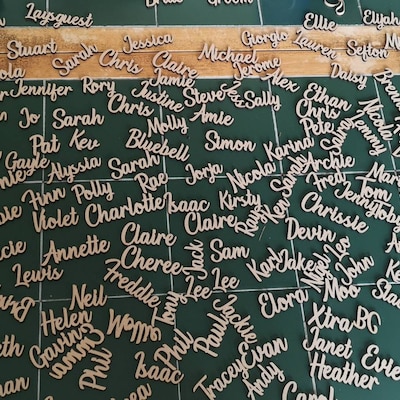 Bride
Groom
Laysguest
Ellie
Elijah
Stuart
Sarah
Jessica
Chris
Claire
Jamie
Michael
Giorgio
Jerome
Lauren
Sefton
Daisy
Jennifer
Rory
Chris
Justine
Steve
Zoe
Sally
Alex
Ethan
Chris
Pete
Nicola
Jo
Sarah
Molly
Amie
Tammy
Pat
Kev
Bluebell
Simon
Karina
Sam
Gayle
Alyssia
Sarah
Rae
Jorja
Nicola
Sandy
Archie
Finn
Polly
Ken
Fred
Jenny
Tom
Toby
Violet
Charlotte
Isaac
Claire
Kirsty
Chrissie
Annette
Claire
Cheree
Jack
Sam
Devin
Lewis
Freddie
Lee
Lee
Karl
Jake
Nigel
Leo
John
Moo
Neil
Helen
William
Tony
Elora
Gavin
Emma
Phil
Phil
Paul
Jackie
Xtra
BG
Isaac
Evan
Janet
Evie
Tracey
Andy
Heather